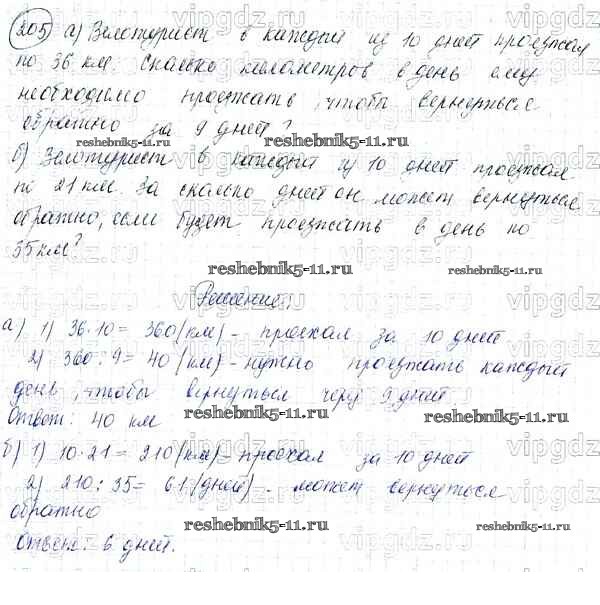 205) а) Велотурист в каждый из 10 дней проезжал
по 36 км. Сколько километров в день ему
необходимо проезжать, чтобы вернуться
обратно за 9 дней?
reshebnik5-11.ru reshebnik5-11.ru
б) Велотурист в каждый из 10 дней проезжал
по 21 км. За сколько дней он может вернуться
обратно, если будет проезжать в день по
35 км?
reshebnik5-11.ru
Решение:
а) 1) 36·10 = 360 (км) - проехал за 10 дней
2) 360 : 9 = 40 (км) - нужно проезжать каждый
день, чтобы вернуться через 9 дней
Ответ: 40 км
reshebnik5-11.ru reshebnik5-11.ru
б) 1) 10·21 = 210 (км) - проехал за 10 дней
2) 210 : 35 = 6 (дней) - может вернуться
обратно
reshebnik5-11.ru
Ответ: 6 дней.
vipgdz.ru